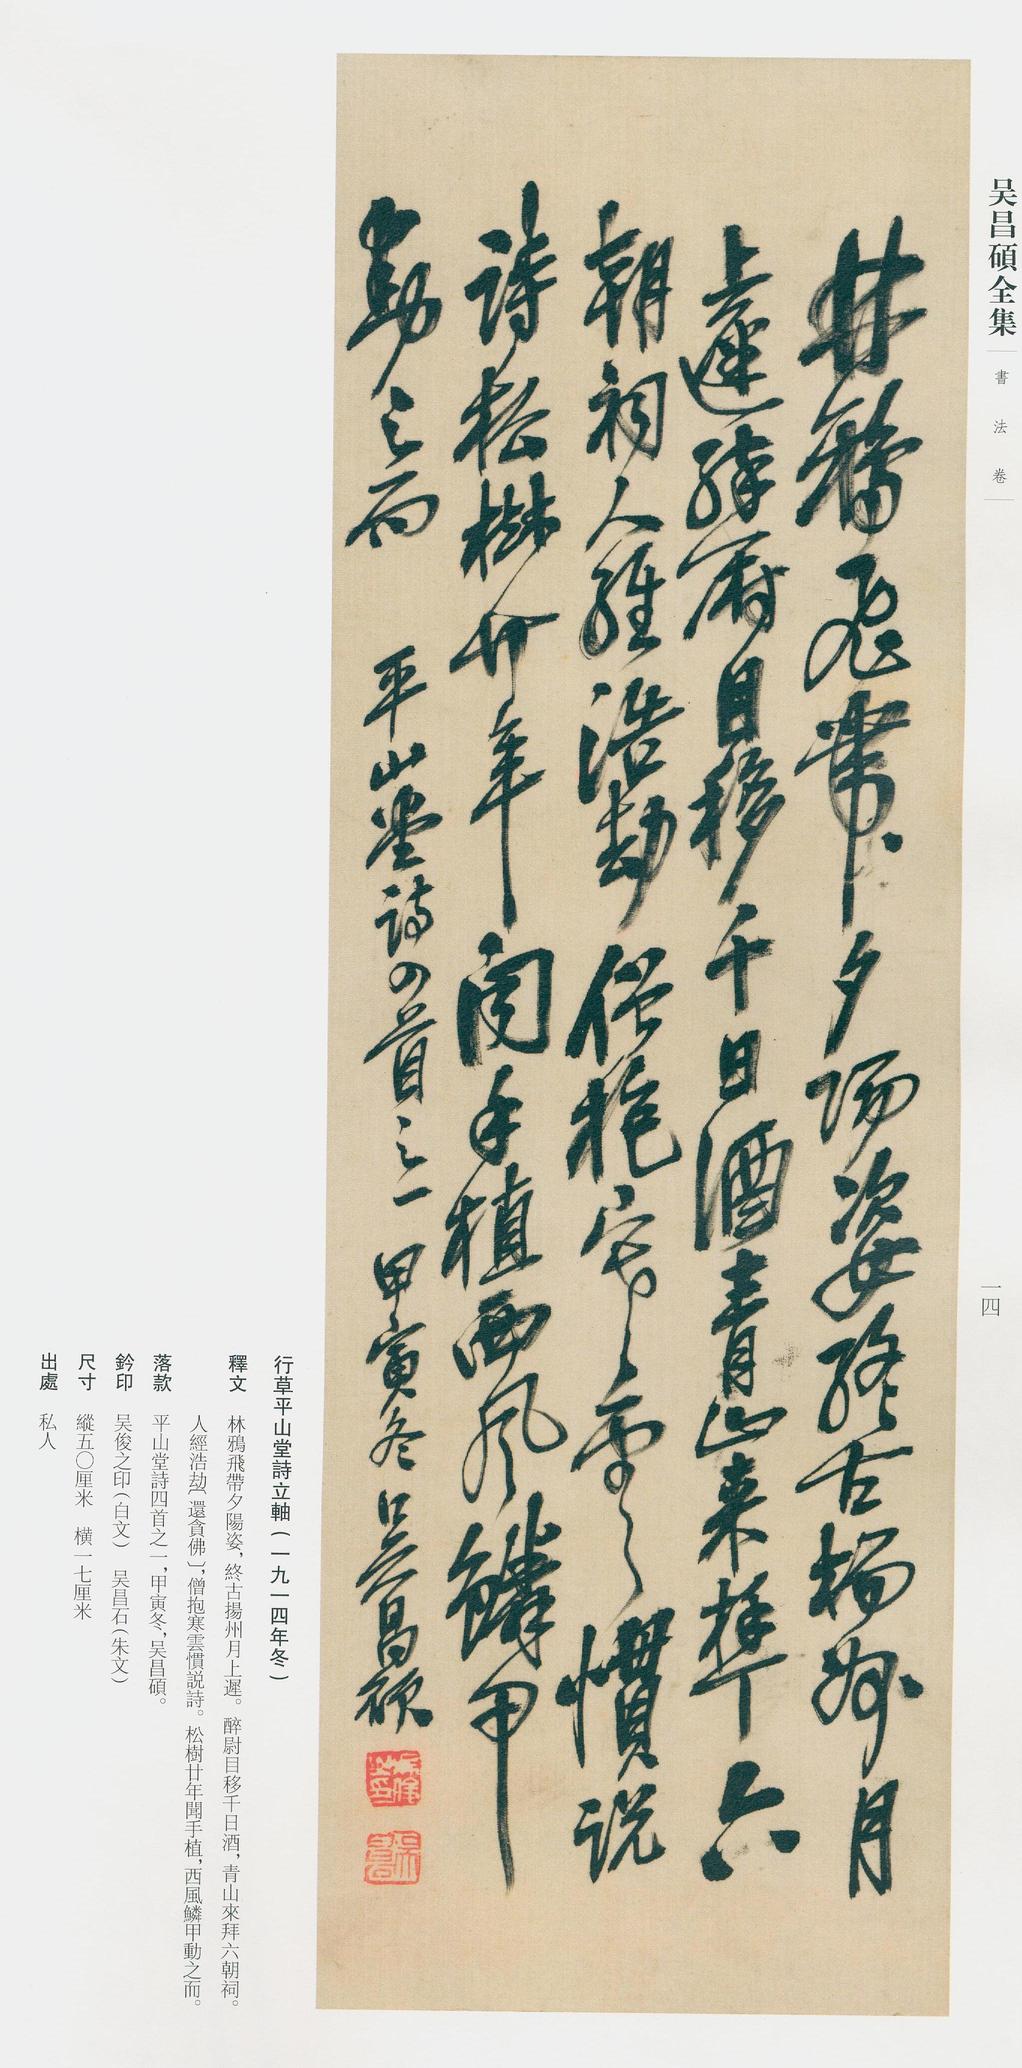 吴昌碩全集
書法卷
一四
林鴉飛帶夕陽姿終古揚州月
上遲醉尉目移千日酒青山来拜六
朝祠人經浩劫僧抱寒雲慣説
詩松樹廿年聞手植西風鱗甲
動之而 平山堂詩四首之一 甲寅冬 吴昌碩
吴俊之印
吴昌石
行草平山堂詩立軸（一九一四年冬）
釋文 林鴉飛帶夕陽姿，終古揚州月上遲。醉尉目移千日酒，青山來拜六朝祠。
人經浩劫〔還貪佛〕，僧抱寒雲慣説詩。松樹廿年聞手植，西風鱗甲動之而。
落款 平山堂詩四首之一，甲寅冬，吴昌碩。
鈐印 吴俊之印（白文） 吴昌石（朱文）
尺寸 縱五〇厘米 横一七厘米
出處 私人